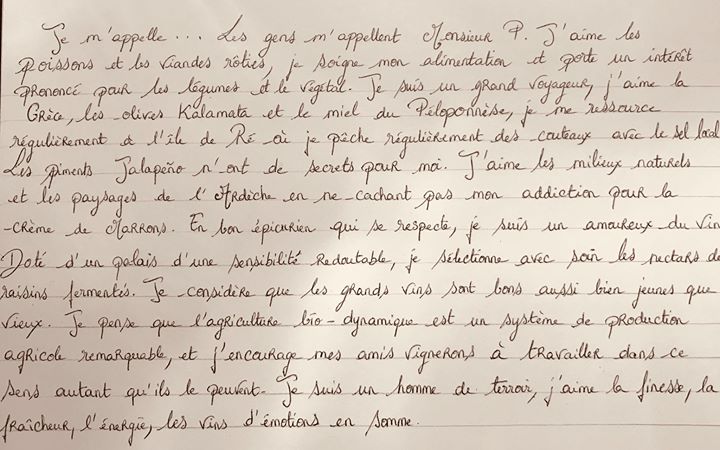 Je m'appelle ... Les gens m'appellent Monsieur P. J'aime les
poissons et les viandes rôties, je soigne mon alimentation et porte un intérêt
prononcé pour les légumes et le végétal. Je suis un grand voyageur, j'aime la
Grèce, les olives Kalamata et le miel du Péloponnèse, je me ressource
régulièrement à l'île de Ré où je pêche régulièrement des couteaux avec le sel local
Les piments Jalapeño n'ont de secrets pour moi. J'aime les milieux naturels
et les paysages de l'Ardèche en ne cachant pas mon addiction pour la
crème de Marrons. En bon épicurien qui se respecte, je suis un amoureux du Vin
Doté d'un palais d'une sensibilité redoutable, je sélectionne avec soin les nectars de
raisins fermentés. Je considère que les grands vins sont bons aussi bien jeunes que
vieux. Je pense que l'agriculture bio-dynamique est un système de production
agricole remarquable, et j'encourage mes amis vignerons à travailler dans ce
sens autant qu'ils le peuvent. Je suis un homme de terroir, j'aime la finesse, la
fraîcheur, l'énergie, les vins d'émotions en somme.